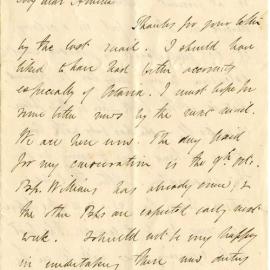 My dear
Thanks for your letter
by the last mail. I should have
liked to have had better accounts
especially of I must hope for
some better news by the next mail.
We are here now. The day fixed
for my consecration is the 9th inst.
Bsp. Williams has already come; &
the other Bps are expected early next
week. I should not be very happy
in undertaking these new duties